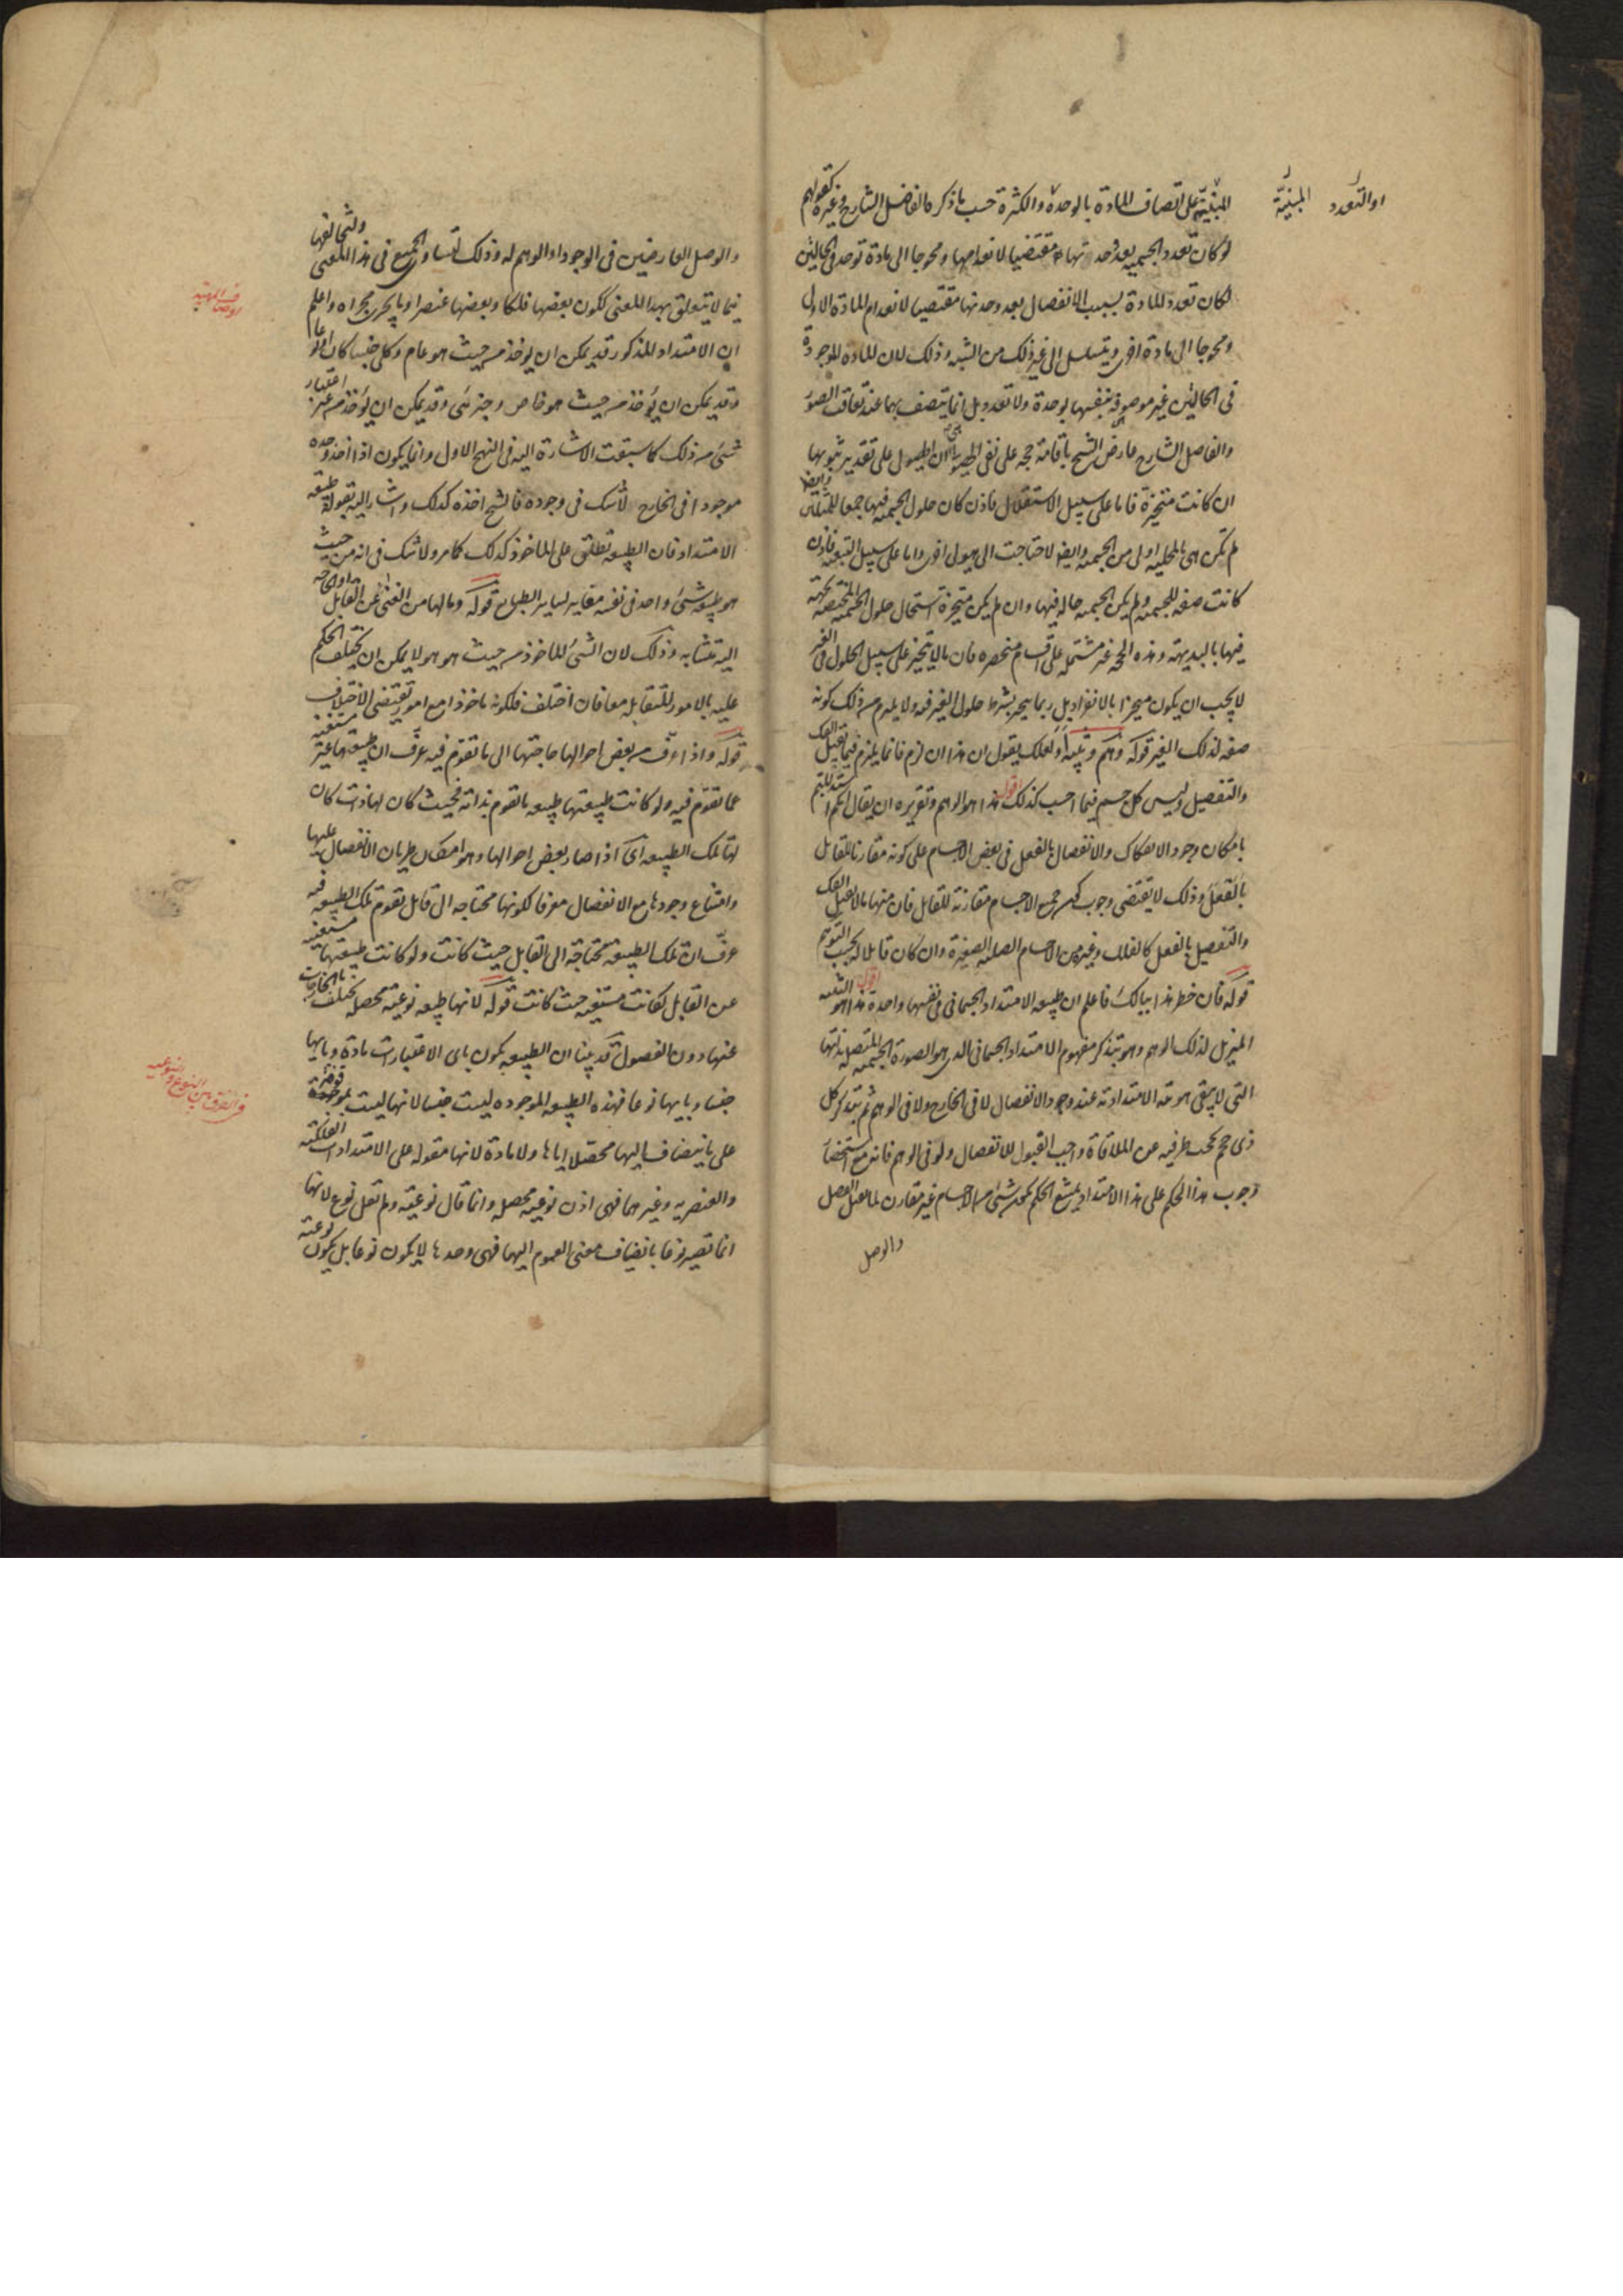 المبنية على اتصاف المادة بالوحدة والكثرة حسب ما ذكره الفاضل الشارح وغيره كقولهم
او التعدد المبنية
لو كان تعدد الجسمية بعد وحدتها مقتضيا لانعدامها ومحوجا الى مادة توجد في الحالتين
لكان تعدد المادة بسبب الانفصال بعد وحدتها مقتضيا لانعدام المادة الاولى
ومحوجا الى مادة اخرى ويتسلسل الى غير ذلك من الشبه وذلك لان المادة الموجودة
في الحالتين غير موصوفة بنفسها بوحدة ولا تعدد بل انما يتصف بهما عند تعاقب الصور
والفاضل الشارح عارض الشيخ باقامة حجة على نفي الهيولى وهي ان الهيولى على تقدير ثبوتها
ان كانت متحيزة فاما على سبيل الاستقلال فاذن كان حلول الجسمية فيها جمعا للمثلين وايضا
لم تكن هي بالمحلية اولى من الجسمية وايضا لاحتاجت الى هيولى اخرى واما على سبيل التبعية فاذن
كانت صفة للجسمية ولم يكن الجسمية حالة فيها وان لم يكن متحيزة استحال حلول الجسمية المختصة بجهة
فيها بالبديهة وهذه الحجة غير مشتملة على اقسام منحصرة فان ما لا يتحيز على سبيل الحلول في الغير
لا يجب ان يكون متحيزا بالانفراد بل ربما يتحيز بشرط حلول الغير فيه ولا يلزم من ذلك كونه
صفة لذلك الغير قوله وهم وتنبيه او لعلك تقول ان هذا ان لزم فانما يلزم فيما يقبل الفك
والتفصيل وليس كل جسم فيما احسب كذلك اقول هذا هو الوهم وتقريره ان يقال انكم استدللتم
بامكان وجود الانفكاك والانفصال بالفعل في بعض الاجسام على كونه مقارنا للقابل
بالفعل وذلك لا يقتضي وجوب كون جميع الاجسام مقارنة للقابل فان منها ما لا يقبل الفك
والتفصيل بالفعل كالفلك وغيره من الاجسام الصلبة الصغيرة وان كان قابلا له بحسب التوهم
قوله فان خطر هذا ببالك فاعلم ان طبيعة الامتداد الجسماني في نفسها واحدة اقول هذا هو التنبيه
المزيل لذلك الوهم وهو بتذكر مفهوم الامتداد الجسماني الذي هو الصورة الجسمية المتصلة بذاتها
التي لا يبقى هويته الامتدادية عند وجود الانفصال لا في الخارج ولا في الوهم ثم بتذكر كل
ذي حجم يحجب طرفيه عن الملاقاة واجب القبول للانفصال ولو في الوهم فانه مع استحضار
وجوب هذا الحكم على هذا الامتداد يمتنع الحكم بكون شيء من الاجسام غير مقارن لما يقبل الفصل
والوصل
والوصل العارضين في الوجود او الوهم له وذلك لتساوي الجميع في هذا المعنى ولتخالفها
فيما لا يتعلق بهذا المعنى ككون بعضها فلكا وبعضها عنصرا وما يجري مجراه واعلم
ان الامتداد المذكور قد يمكن ان يؤخذ من حيث هو عام وكلي جنسا كان او نوعا
وقد يمكن ان يؤخذ من حيث هو خاص وجزئي وقد يمكن ان يؤخذ من غير اعتبار
شيء من ذلك كما سبقت الاشارة اليه في النهج الاول وانما يكون اذا اخذ وحده
موجودا في الخارج لا شك في وجوده فالشيخ اخذه كذلك واشار اليه بقوله طبيعة
الامتداد فان الطبيعة تطلق على الماخوذ كذلك كما مر ولا شك في انه من حيث
هو طبيعة شيء واحد في نفسه مغاير لساير الطبايع قوله وما لها من الغنى عن القابل او الحاجة
اليه متشابه وذلك لان الشيء الماخوذ من حيث هو هو لا يمكن ان يختلف الحكم
عليه بالامور المتقابلة معا فان اختلف فلكونه ماخوذا مع امور تقتضي الاختلاف
قوله واذا عرف من بعض احوالها حاجتها الى ما تقوم فيه عرف ان طبيعتها غير مستغنية
عما تقوم فيه ولو كانت طبيعتها طبيعة ما تقوم بذاته فحيث كان لها ذات كان
لها تلك الطبيعة اي اذا صار بعض احوالها وهو امكان طريان الانفصال عليها
وامتناع وجودها مع الانفصال معرفا لكونها محتاجة الى قابل تقوم تلك الطبيعة فيه
عرف ان تلك الطبيعة محتاجة الى القابل حيث كانت ولو كانت طبيعتها مستغنية
عن القابل لكانت مستغنية حيث كانت قوله لانها طبيعة نوعية محصلة تختلف بالخارجات
عنها دون الفصول قد بينا ان الطبيعة تكون باي الاعتبارات مادة وبايها
جنسا وبايها نوعا فهذه الطبيعة الموجودة ليست جنسا لانها ليست موقوفة
على ما ينضاف اليها محصلا اياها ولا مادة لانها مقولة على الامتدادات الفلكية
والعنصرية وغيرهما فهي اذن نوعية محصلة وانما قال نوعية ولم تقل نوع لانها
انما تصير نوعا بانضياف معنى العموم اليها فهي وحدها لا يكون نوعا بل يكون نوعية
في الفرق بين النوع والنوعية